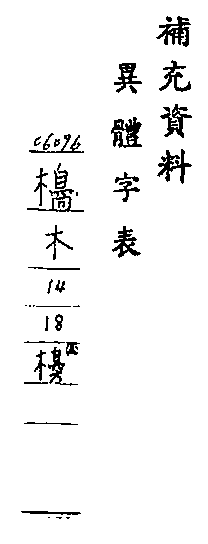 補充資料
異體字表
C6096
木
14
18